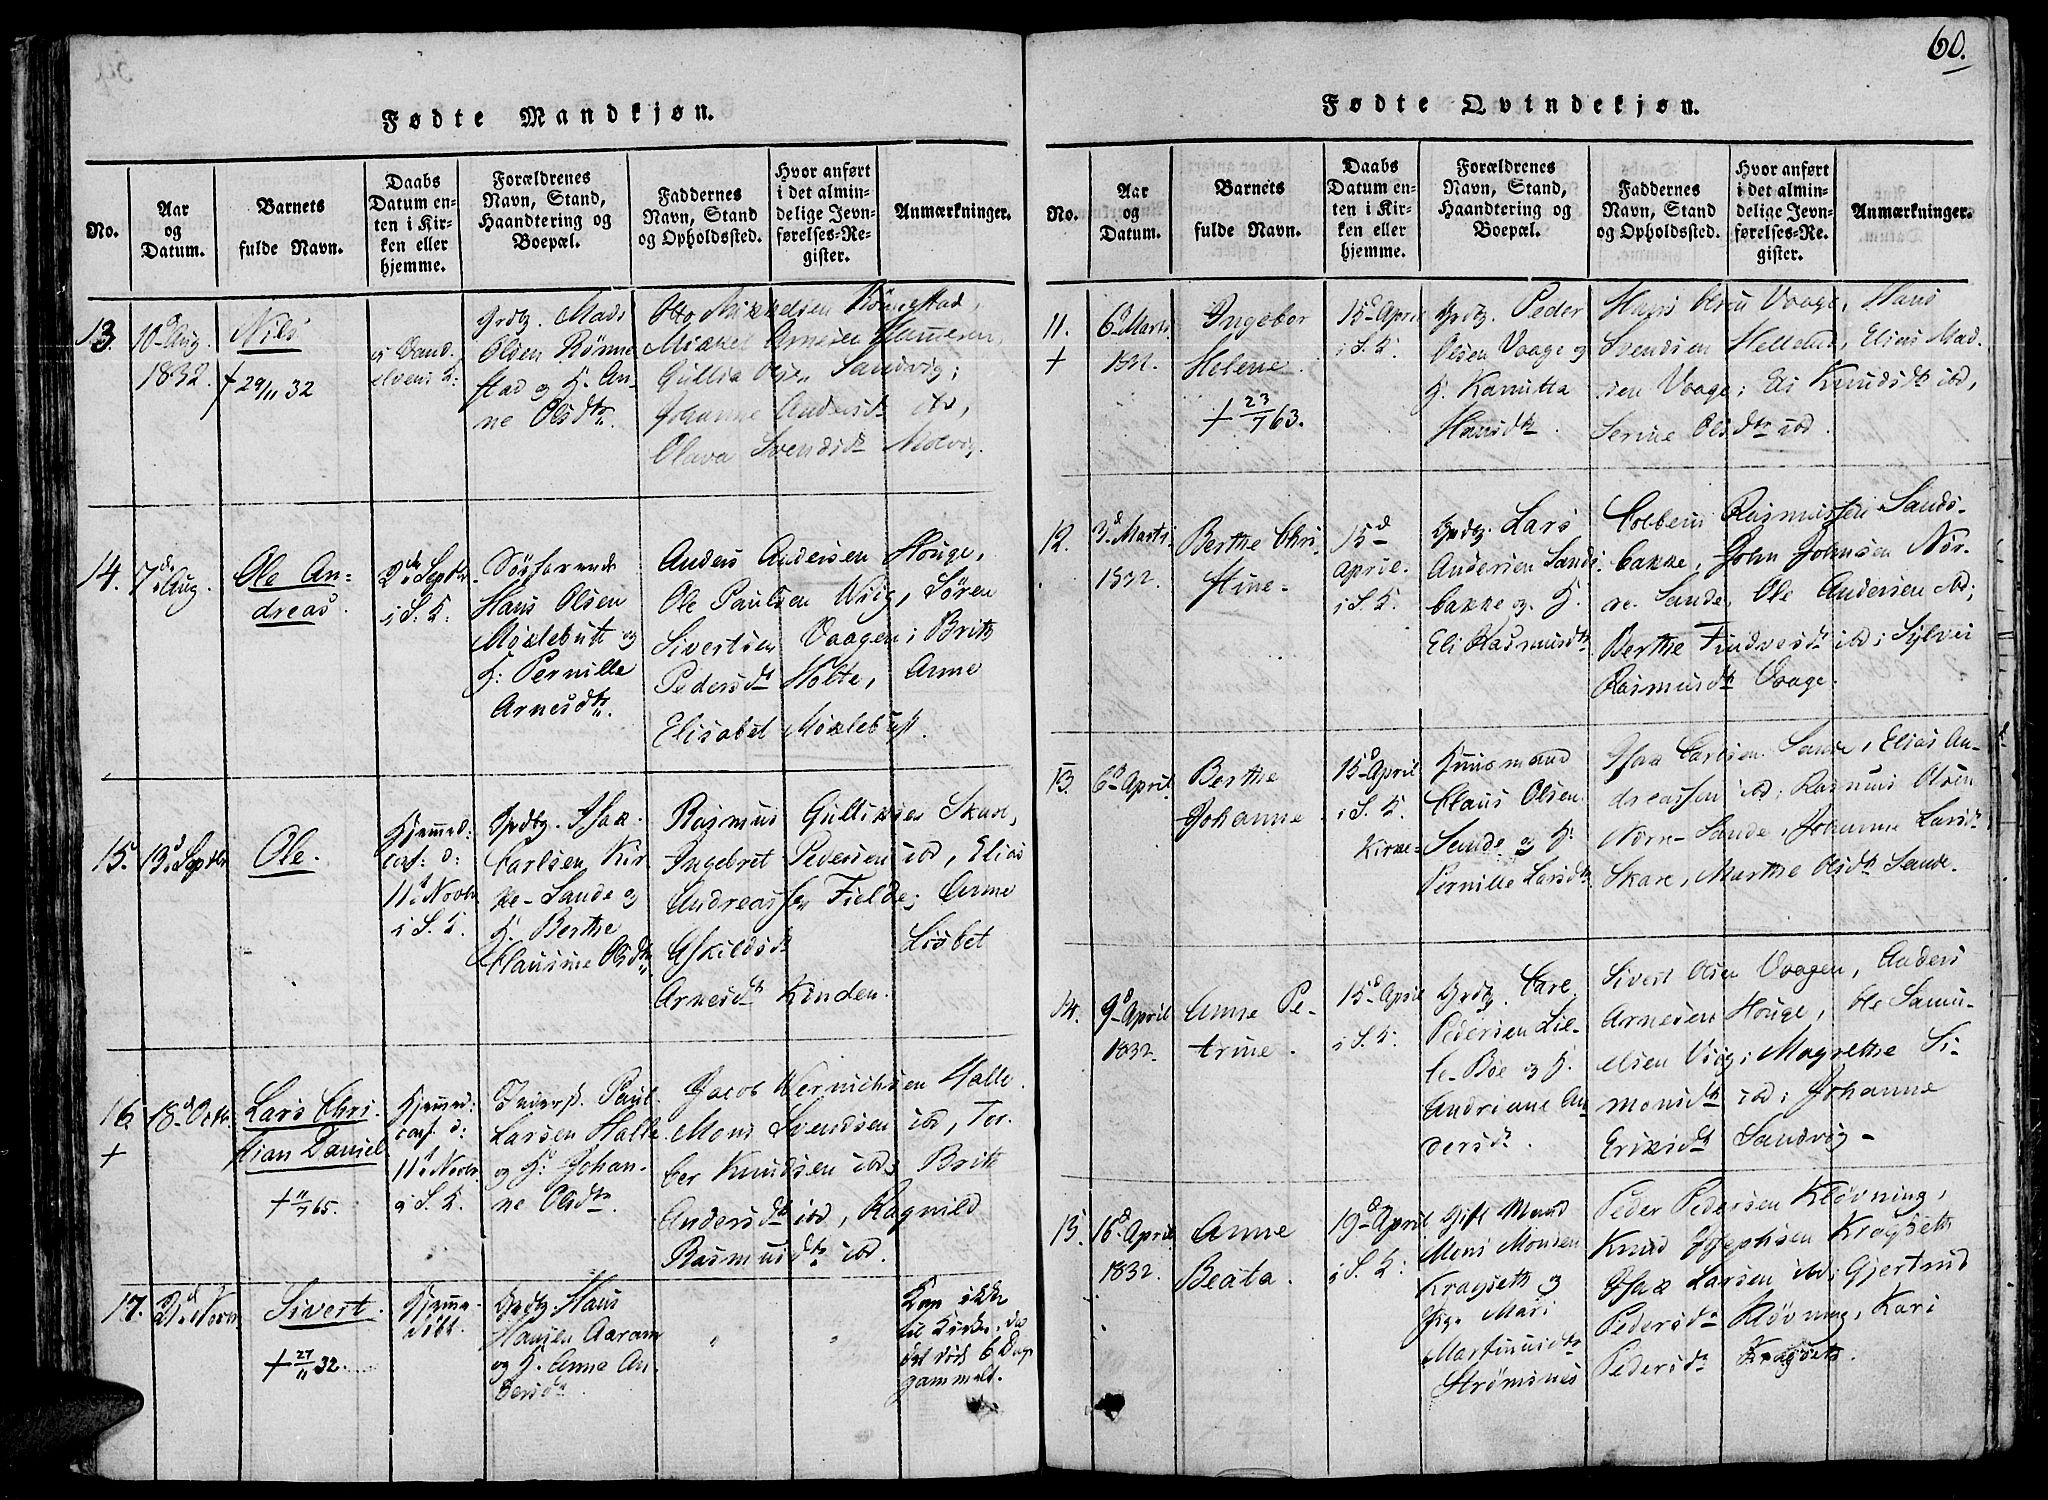 60.
Fødte Mandkjøn.
No.
Aar
og
Datum.
Barnets
fulde Navn.
Daabs
Datum en-
ten i Kir-
ken eller
hjemme.
Forældrenes
Navn, Stand,
Haandtering og
Boepæl.
Faddernes
Navn, Stand
og Opholdssted.
Hvor anført
i det almin-
delige Jevn-
førelses-Re-
gister.
Anmærkninger.
13.
10d Aug.
1832.
Nils
+ 29/11 32
i Vand
elvens K:
Grdbr. Mads
Olsen Rønne
stad og K. An-
ne Olsdtr.
Otto Mikkelsen Rønnestad,
Mikkel Arnesen
Gullia Olsen Sandvig;
Johanne Andersd ibd,
Olava Svendsd Molvig.
14.
7de Aug.
Ole An-
dreas.
2de Septbr.
i S. K:
Søefarende
Hans Olsen
Møklebust og
K: Pernille
Arnesdtr.
Anders Andersen Houge,
Ole Paulsen Wiig, Søren
Sivertsen Vaagen; Brite
Pedersdt Holte, Anne
Elisabet Møklebust.
15.
13d Septbr
Ole.
Hjemmed:
conf: d:
11t Novbr
i S. K.
Grdbr. Isak
Carlsen Kir-
ke-Sande og
K. Berthe
Clausine Olsdtr
Rasmus Gulliksen Skare,
Ingebret Pedersen ibd, Elias
Andreassen Fielde; Anne
Askildsdt Lisbet
Arnesdt Kinden.
16.
+
18d Octbr.
Lars Chri-
stian Daniel
+ 11/7 65.
Hjemmed:
conf. d:
11t Novbr.
i S. K.
Inderst. Paul
Larsen Halle
og K: Johan-
ne Olsdtr.
Jacob Wernichsen Halle.
Mons Svendsen ibd, Tor-
ber Knudsen ibd; Brite
Andersdt ibd, Ragnild
Rasmusdtr ibd.
17.
21d Novbr
Sivert.
+ 27/11 32.
Hjemme-
døbt.
Grdbr. Hans
Hansen Aaram
og K. Anna An-
dersdtr.
Kom ikke
til Kirke, da
det døde 6 Dage
gammelt.
Fødte Qvindekjøn.
No.
Aar
og
Datum.
Barnets
fulde Navn.
Daabs
Datum en-
ten i Kir-
ken eller
hjemme.
Forældrenes
Navn, Stand,
Haandtering og
Boepæl.
Faddernes
Navn, Stand
og Opholdssted.
Hvor anført
i det almin-
delige Jevn-
førelses-Re-
gister.
Anmærkninger.
11.
+
6d Marts
1832.
Ingebor
Helene.
+ 23/7 63.
15d April
i S. K.
Grdbr. Peder
Olsen Vaage og
K. Kanutta
Hansdtr.
Hans Olsen Vaage, Hans
Svendsen Hellelid, Elias Mad-
sen Vaage; Eli Knudsdtr ibd,
Serine Olsdtr ibd.
12.
3d Marts
1832.
Berthe Chri-
stine.
15d
April.
i S. K.
Grdbr. Lars
Andersen Sands-
bakke og K.
Eli Rasmusdtr
Colbein Rasmussen Sands-
bakke, John Johnsen Nør-
re Sande, Ole Andersen ibd;
Berthe Findvesdt ibd; Sylvei
Rasmusdtr Vaage.
13.
6d April.
Berthe
Johanne
15d April
i S. K.
Huusmand
Claus Olsen
Kirke-
Sande og K:
Pernille Larsdtr
Isaa Carlsen Sande, Elias An-
dreassen ibd; Rasmus Olsen
Nørre-Sande; Johanne Larsdtr
Skare, Marthe Olsdtr Sande.
14.
9d April
1832.
Anne Pe-
trine.
15d April
i S. K:
Grdbr. Carl
Pedersen Lil-
le-Bøe og K.
Andriane An-
dersdtr.
Sivert Olsen Vaagen, Anders
Arnesen Houge, Ole Samu-
elsen Viig; Magrethe Si-
monsdtr ibd; Johanne
Eriksdt Sandvig-
15.
16d April
1832.
Anne
Beata.
19d April
i S. K:
Gift Mand
Mons Monsen
Kragseth og
Pige Mari
Martinusdtr
Strømsnes
Peder Pedersen Kløvning,
Knud Josephsen Kragseth
Isak Larsen ibd; Gjertrud
Pedersdtr Kløvning, Kari
Pedersdtr Kragseth.